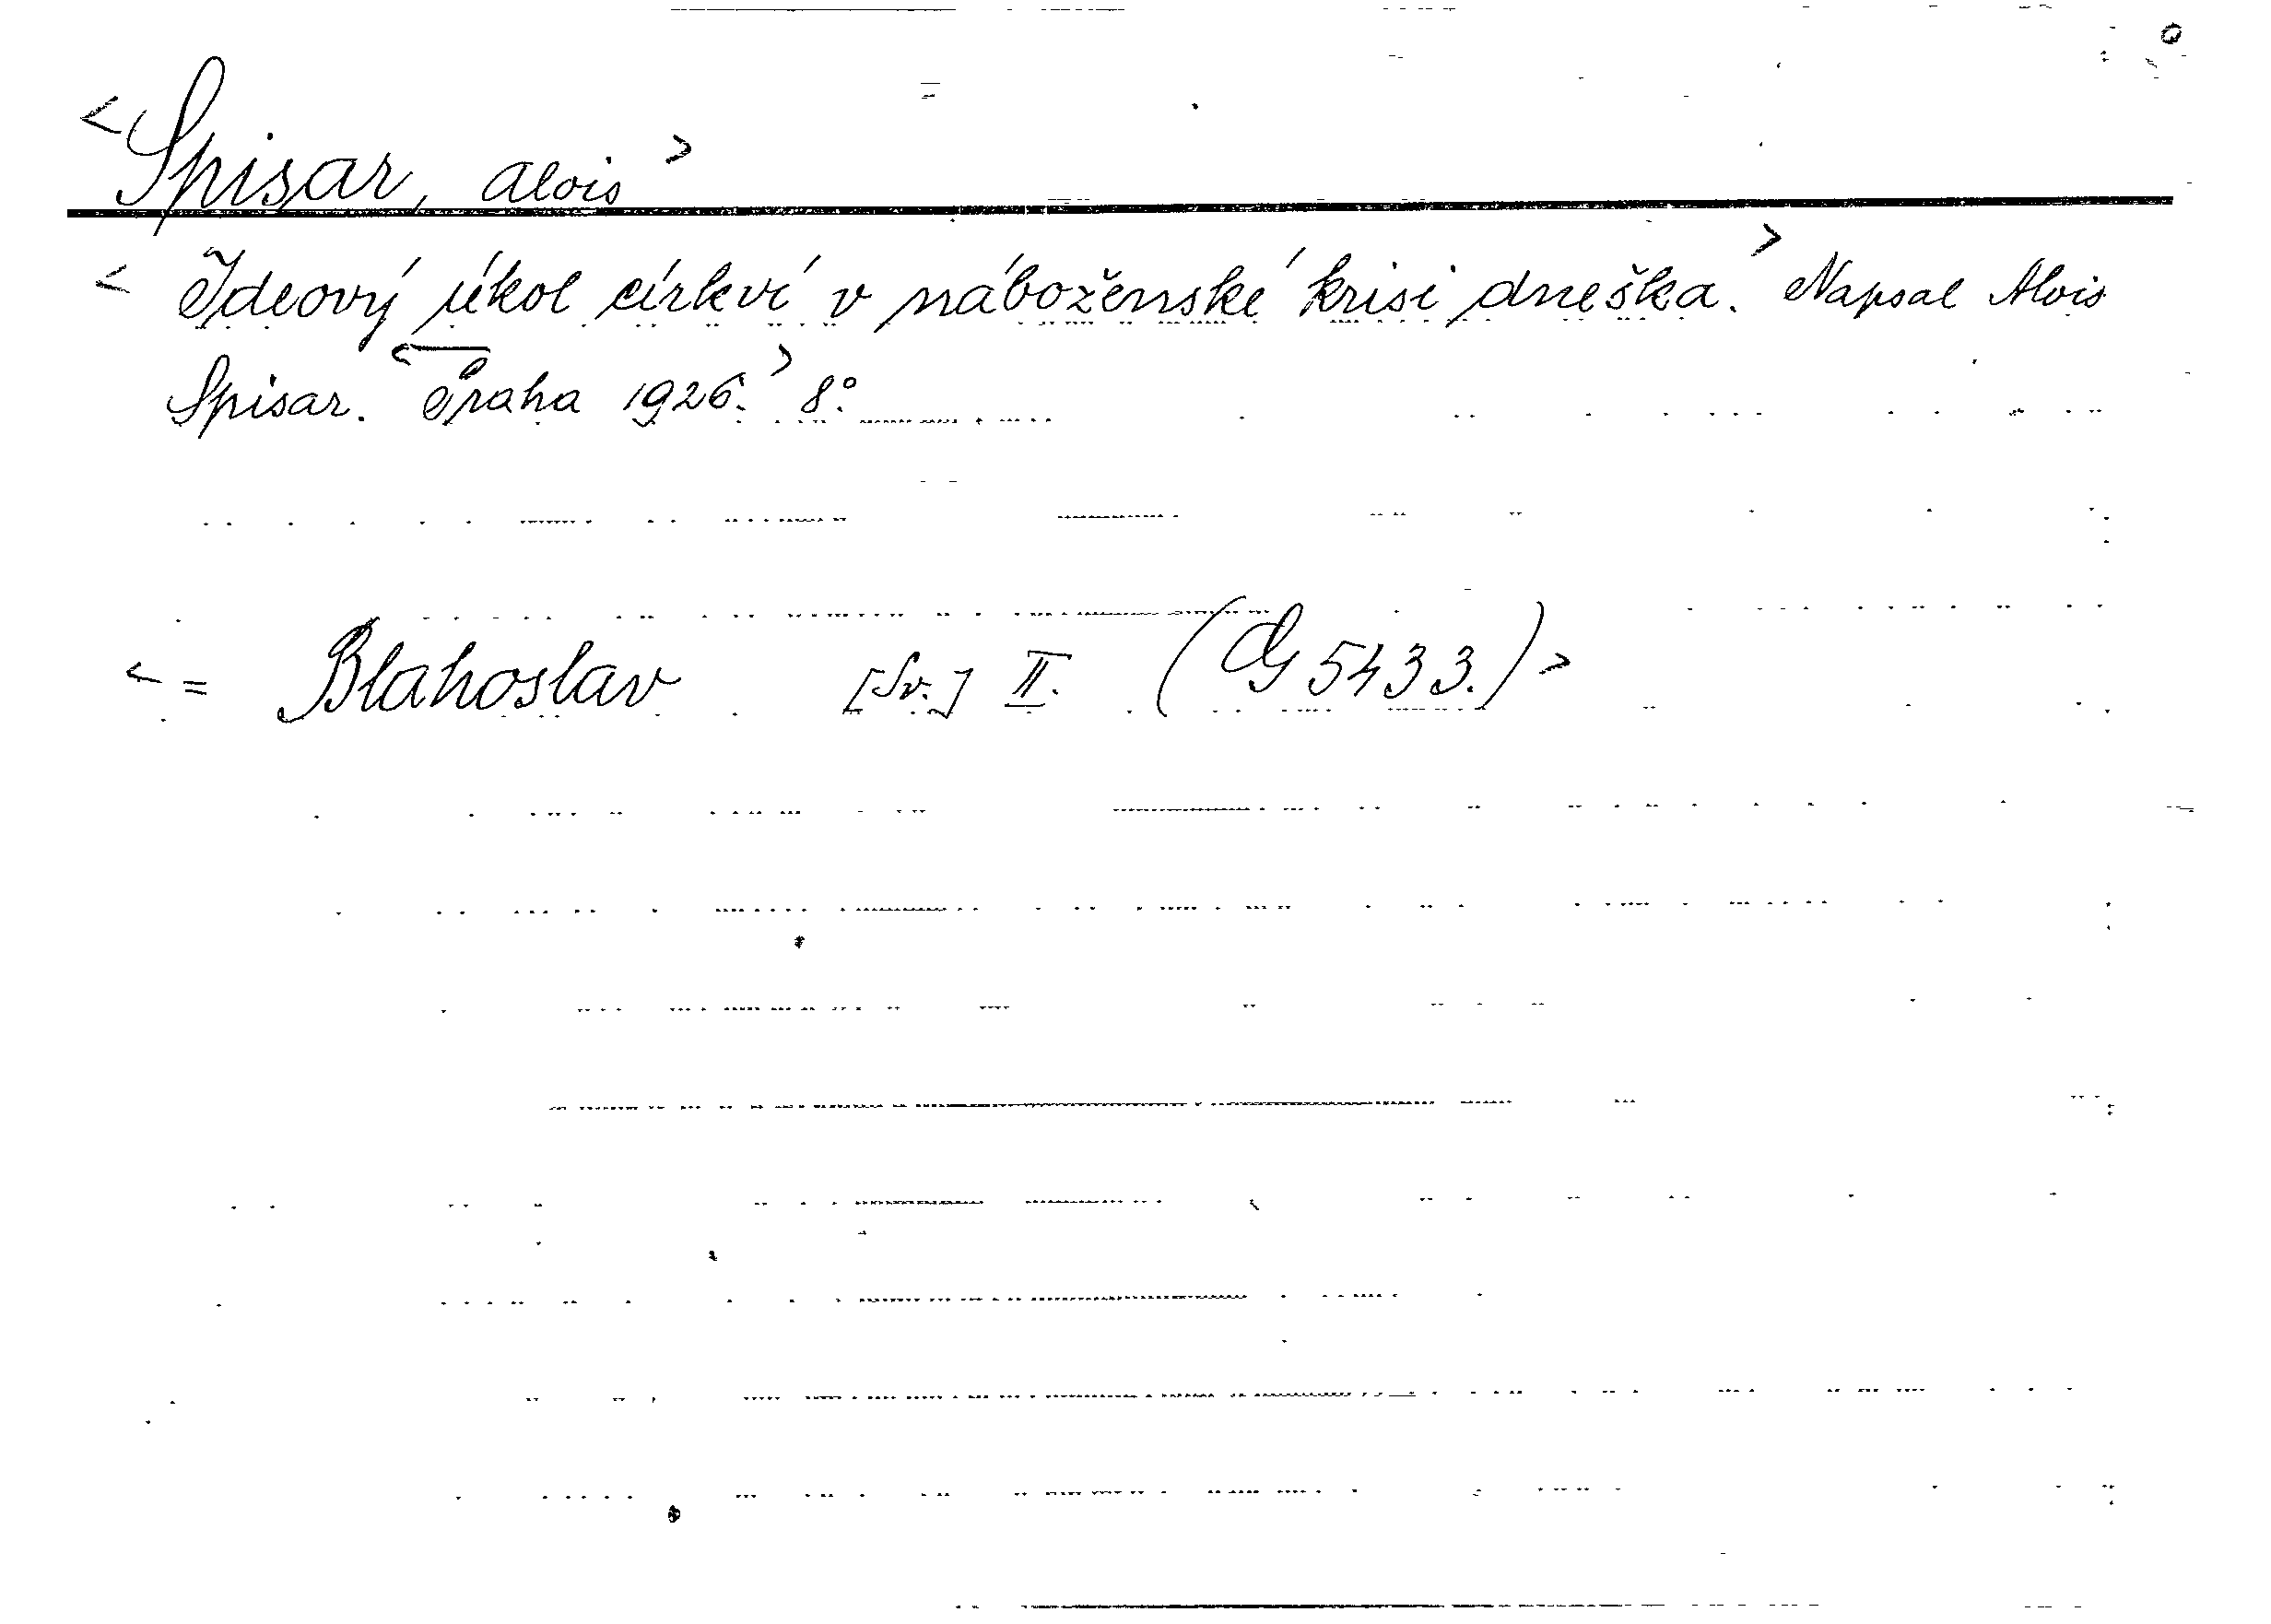 <Spisar, Alois>
<Ideový úkol církví v náboženské krisi dneška.> Napsal Alois
Spisar. <Praha 1926.> 8°.
<= Blahoslav [Sv.] II. (G 5433.)>